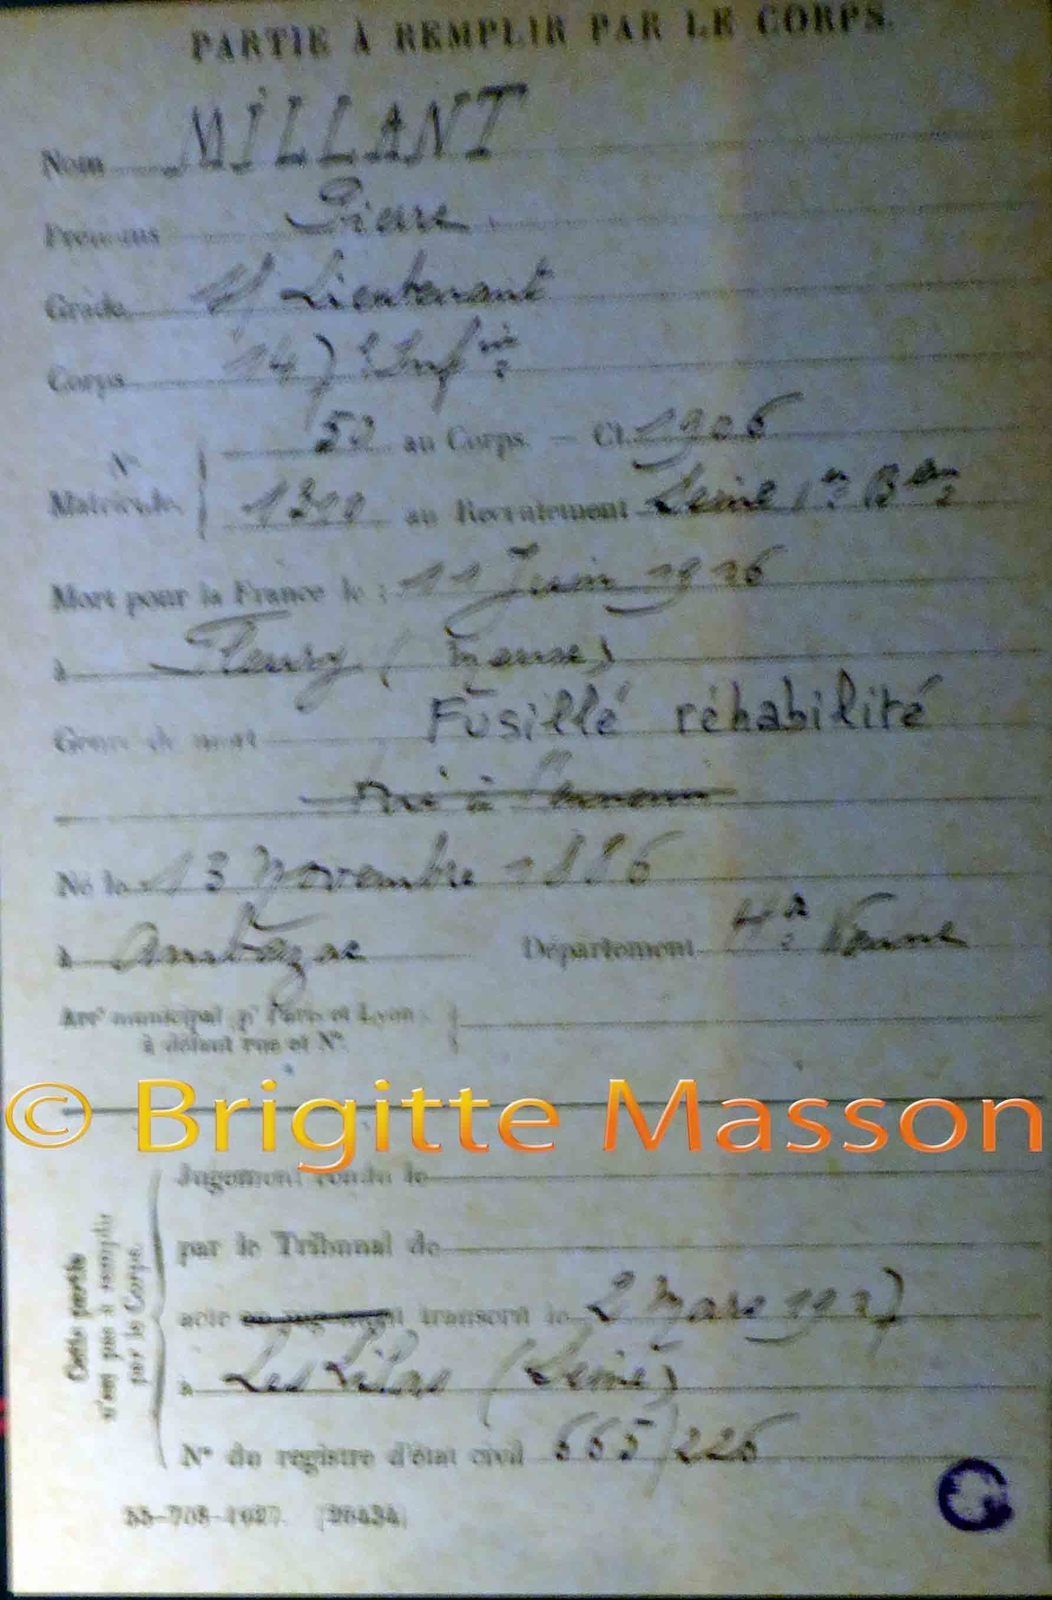 PARTIE À REMPLIR PAR LE CORPS.
Nom MILLANT
Prénoms Pierre
Grade s/ Lieutenant
Corps 147 e Inf rie
N° Matricule 52 au Corps. — Cl. 1906
1300 au Recrutement Seine 1er B
Mort pour la France le : 11 Juin 1916
à Fleury (Meuse)
Genre de mort Fusillé réhabilité
Tué à l'ennemi
Né le 13 Novembre 1886
à Ambazac Département Hte Vienne
Arrt municipal pr Paris et Lyon,
à défaut rue et N°.
© Brigitte Masson
Cette partie n'est pas à remplir par le Corps.
Jugement rendu le
par le Tribunal de
acte ou jugement transcrit le 2 Mars 1927
à Les Lilas (Seine)
N° du registre d'état civil 665/226
(26434)